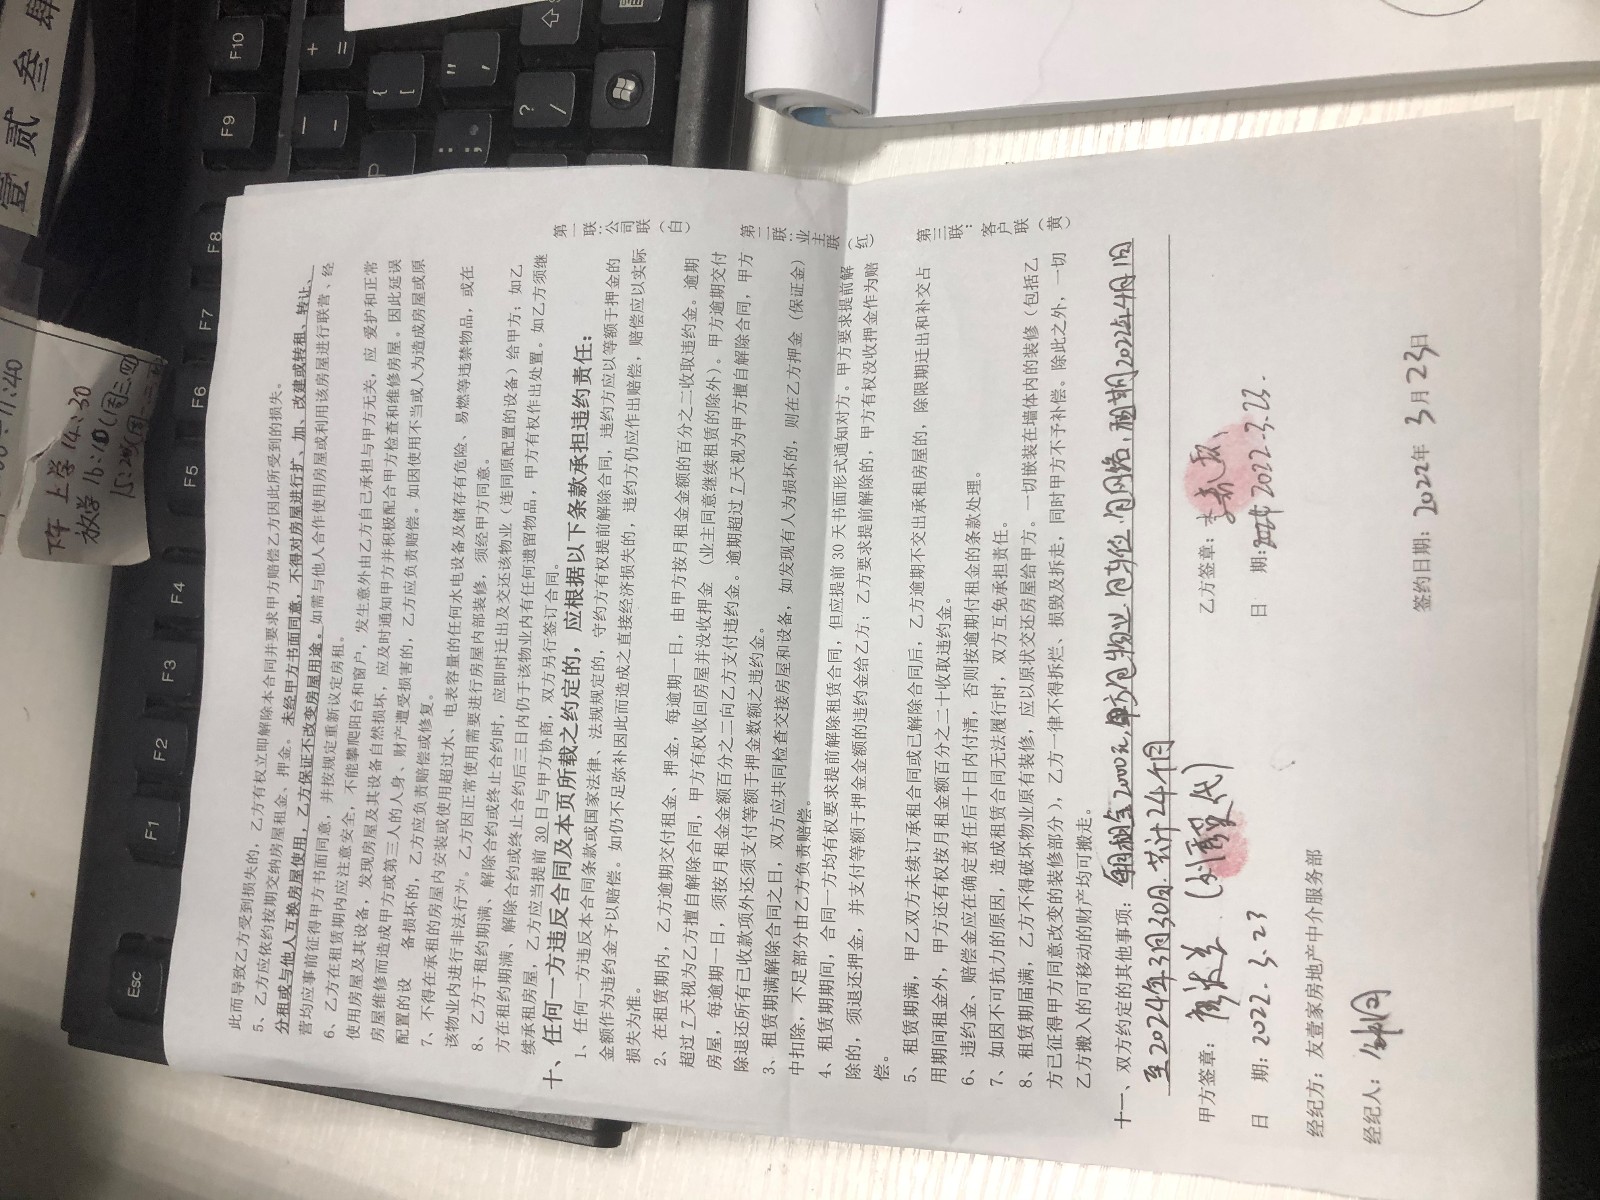 此而导致乙方受到损失的，乙方有权立即解除本合同并要求甲方赔偿乙方因此所受到的损失。
5、乙方应依约按期交纳房屋租金、押金。未经甲方书面同意，不得对房屋进行扩、加、改建或转租、转让、
分租或与他人互换房屋使用，乙方保证不改变房屋用途。如需与他人合作使用房屋或利用该房屋进行联营、经
营均应事前征得甲方书面同意，并按规定重新议定房租。
6、乙方在租赁期内应注意安全，不能攀爬阳台和窗户，发生意外由乙方自己承担与甲方无关，应 爱护和正常
使用房屋及其设备，发现房屋及其设备自然损坏，应及时通知甲方并积极配合甲方检查和维修房屋。因此延误
房屋维修而造成甲方或第三人的人身、财产遭受损害的，乙方应负责赔偿。如因使用不当或人为造成房屋或原
配置的设 备损坏的，乙方应负责赔偿或修复。
7、不得在承租的房屋内安装或使用超过水、电表容量的任何水电设备及储存有危险、易燃等违禁物品，或在
该物业内进行非法行为。乙方因正常使用需要进行房屋内部装修，须经甲方同意。
8、乙方于租约期满、解除合约或终止合约时，应即时迁出及交还该物业（连同原配置的设备）给甲方；如乙
方在租约期满、解除合约或终止合约后三日内仍于该物业内有任何遗留物品，甲方有权作出处置。如乙方须继
续承租房屋，乙方应当提前 30 日与甲方协商，双方另行签订合同。
十、任何一方违反合同及本页所载之约定的，应根据以下条款承担违约责任：
1、任何一方违反本合同条款或国家法律、法规规定的，守约方有权提前解除合同，违约方应以等额于押金的
金额作为违约金予以赔偿。如仍不足弥补因此而造成之直接经济损失的，违约方仍应作出赔偿，赔偿应以实际
损失为准。
2、在租赁期内，乙方逾期交付租金、押金，每逾期一日，由甲方按月租金金额的百分之二收取违约金。逾期
超过 7 天视为乙方擅自解除合同，甲方有权收回房屋并没收押金（业主同意继续租赁的除外）。甲方逾期交付
房屋，每逾期一日，须按月租金金额百分之二向乙方支付违约金。逾期超过 7 天视为甲方擅自解除合同，甲方
除退还所有已收款项外还须支付等额于押金数额之违约金。
3、租赁期满解除合同之日，双方应共同检查交接房屋和设备，如发现有人为损坏的，则在乙方押金（保证金）
中扣除，不足部分由乙方负责赔偿。
4、租赁期期间，合同一方均有权要求提前解除租赁合同，但应提前 30 天书面形式通知对方。甲方要求提前解
除的，须退还押金，并支付等额于押金金额的违约金给乙方；乙方要求提前解除的，甲方有权没收押金作为赔
偿。
5、租赁期满，甲乙双方未续订承租合同或已解除合同后，乙方逾期不交出承租房屋的，除限期迁出和补交占
用期间租金外，甲方还有权按月租金额百分之二十收取违约金。
6、违约金、赔偿金应在确定责任后十日内付清，否则按逾期付租金的条款处理。
7、如因不可抗力的原因，造成租赁合同无法履行时，双方互免承担责任。
8、租赁期届满，乙方不得破坏物业原有装修，应以原状交还房屋给甲方。一切嵌装在墙体内的装修（包括乙
方已征得甲方同意改变的装修部分），乙方一律不得拆烂、损毁及拆走，同时甲方不予补偿。除此之外，一切
乙方搬入的可移动的财产均可搬走。
十一、双方约定的其他事项：月租金2000元，甲方包物业 包车位 包网络，租期2022年4月1日
至2024年3月30日. 共计24个月
甲方签章：
乙方签章：
日 期：2022.3.23
日 期：2022.3.23.
经纪方：友壹家房地产中介服务部
经纪人：
签约日期：2022年 3月 23日
第一联：公司联（白）
第二联：业主联（红）
第三联：客户联（黄）
下午 上学 14:30
放学 16:10(周三.四)
11:40
壹 贰 叁 肆
Esc
F1
F2
F3
F4
F5
F6
F7
F8
F9
F10